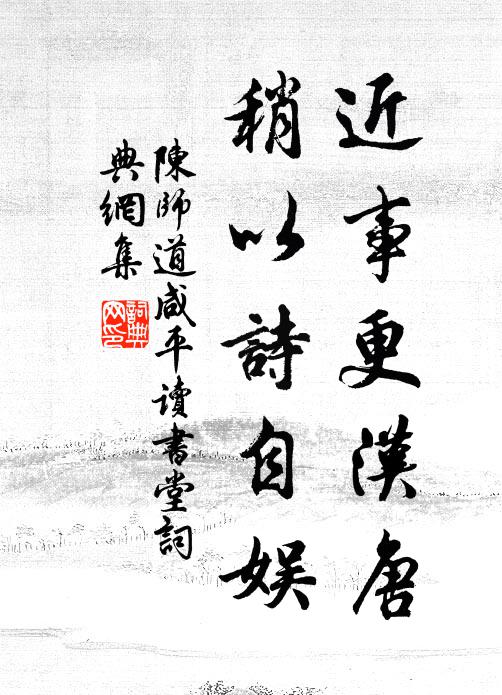 近事更漢唐
稍以詩自娱
陳師道咸平讀書堂詞
典網集
詞典网印